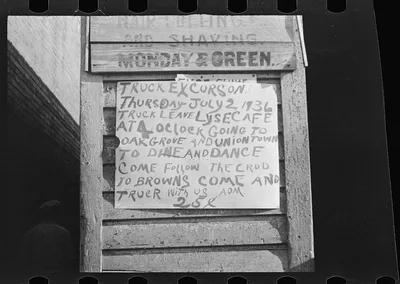 HAIR CUTTING
AND SHAVING
MONDAY & GREEN
TRUCK EXCURSON
THURSDAY JULY 2 1936
TRUCK LEAVE LYSE CAFE
AT 4 OCLOCK GOING TO
OAK GROVE AND UNIONTOWN
TO DINE AND DANCE
COME FOLLOW THE CROD
TO BROWNS COME AND
TRUCR WITH US ADM
25¢